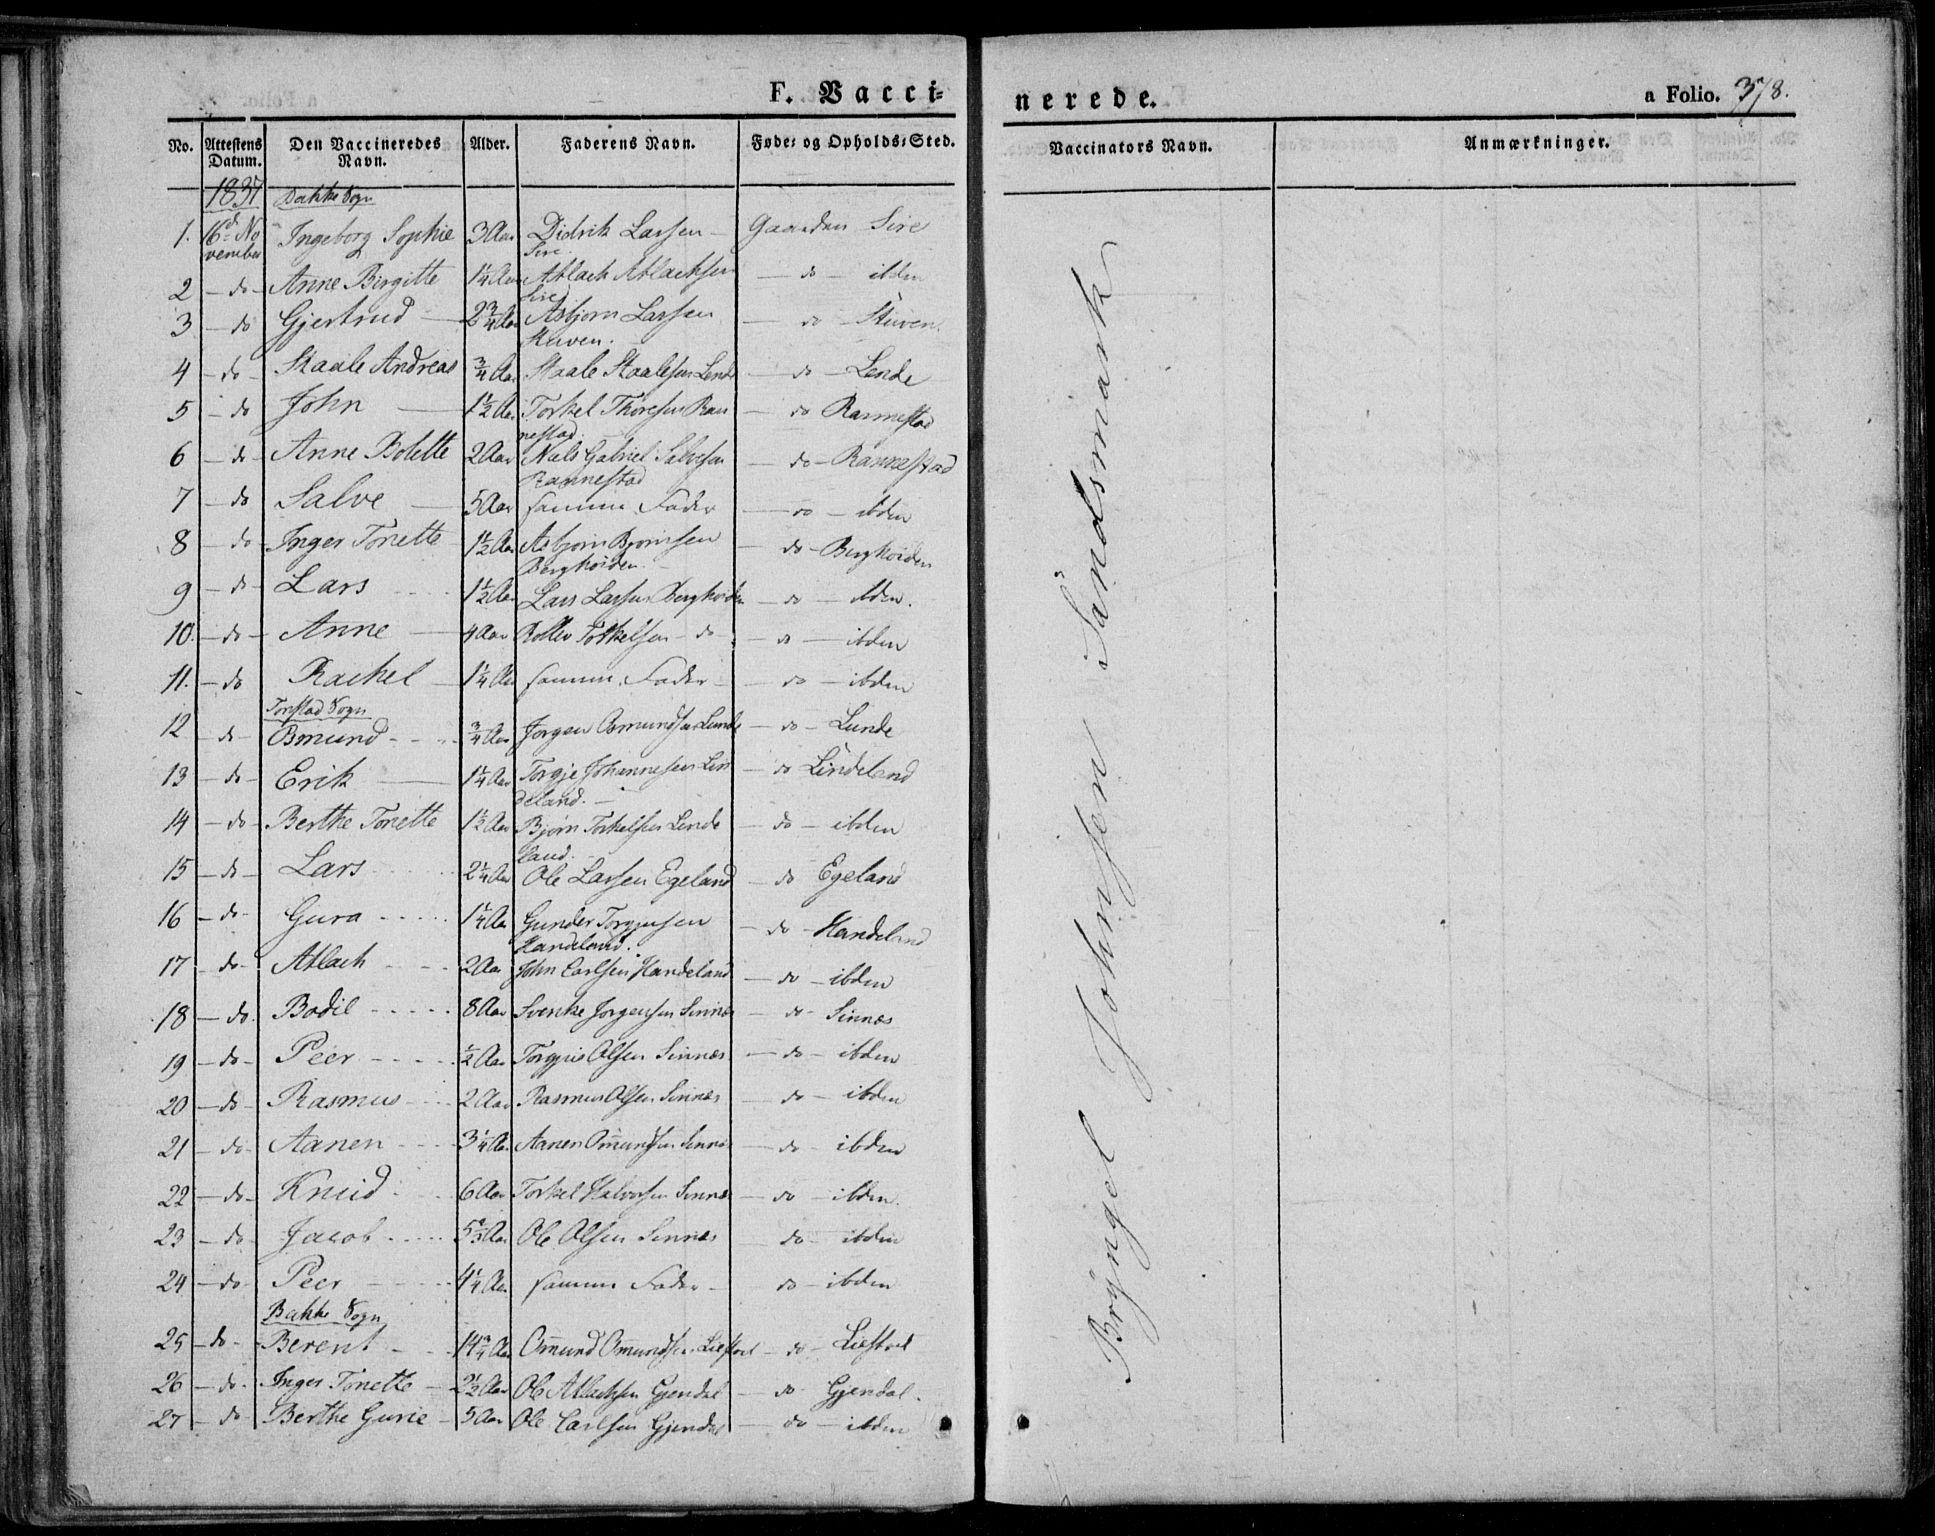 F. Vacci-
nerede.
a Folio. 378.
No. Attestens Datum. Den Vaccineredes Navn. Alder. Faderens Navn. Føde- og Opholds-Sted. Vaccinators Navn. Anmærkninger.
1837 Bakke Sogn
1. 16d No Ingeborg Sophie 3 Aar Didrik Larsen - Gaarden Sire
vember Sire.
2 - do - Anne Birgitte 1¼ Aar Atlach Atlachsen - do - ibden
Sire
3 - do Gjertrud - 2¾ Aar Asbjørn Larsen - do - Stuven.
Stuven.
4 - do - Staale Andreas ¾ Aar Staale Staalesen Lende - do - Lende
5 - do John - 1½ Aar Torkel Thoresen Ran - do Rannestad
nestad.
6 - do - Anne Bolette 2 Aar Niels Gabriel Salvesen - do - Rannestad
Rannestad
7 - do Salve - 5 Aar samme Fader - do - ibden
8 - do Inger Tonette 1½ Aar Asbjørn Bjørnsen - do - Berghøiden
Berghøiden.
9 - do - Lars 1½ Aar Lars Larsen Berghøiden - do - ibden.
10. - do - Anne - 4 Aar Rollev Torkelsen - do - do - ibden
11. - do Rachel - 1¼ Aar samme Fader - - do - ibden
Tonstad Sogn
12 - do - Omund - - - ¾ Aar Jørgen Omundsen Lunde - do - Lunde
13 - do - Erik - 1¼ Aar Torgje Johannesen Lin - do Lindeland
deland. -
14 - do - Berthe Tonette 1½ Aar Bjørn Torkelsen Linde - do - ibden
land.
15 - do - Lars 2¼ Aar Ole Larsen Egeland - do Egeland
16 - do - Gura - - - - 1¼ Aar Gunder Torgjusen - do - Handeland
Handeland.
17 - do - Atlach - - - 2 Aar John Carlsen Handeland - do - ibden
18 - do. Bodil - - - - - 8 Aar Svenke Jørgensen Sinnæs - do - Sinnæs
19 - do - Peer - - - - ½ Aar Torgjus Olsen Sinnæs - do - ibden
20 - do - Rasmus - - - 2 Aar Rasmus Olsen Sinnæs - do - ibden
21 - do - Aanen - - - 3¼ Aar Aanen Omundsen Sinnæs - do - ibden
22 - do - Knud - - - 6 Aar Torkel Halvorsen Sinnæs - do - ibden.
23 - do - Jacob - - - - Aar Ole Olsen Sinnæs - do - ibden
24 - do - Peer - - - 4¼ Aar samme Fader - - do - ibden
Bakke Sogn
25 - do - Berent - - - Aar Omund Omundsen Liestoel - do - Liestoel
26 - do - Inger Tonette - 2½ Aar Ole Atlachsen Gjendal - do - Gjendal.
27 - do Berthe Gurie - 5 Aar Ole Carlsen Gjendal - do - ibden
Bryngel Johnsen Sandsmark